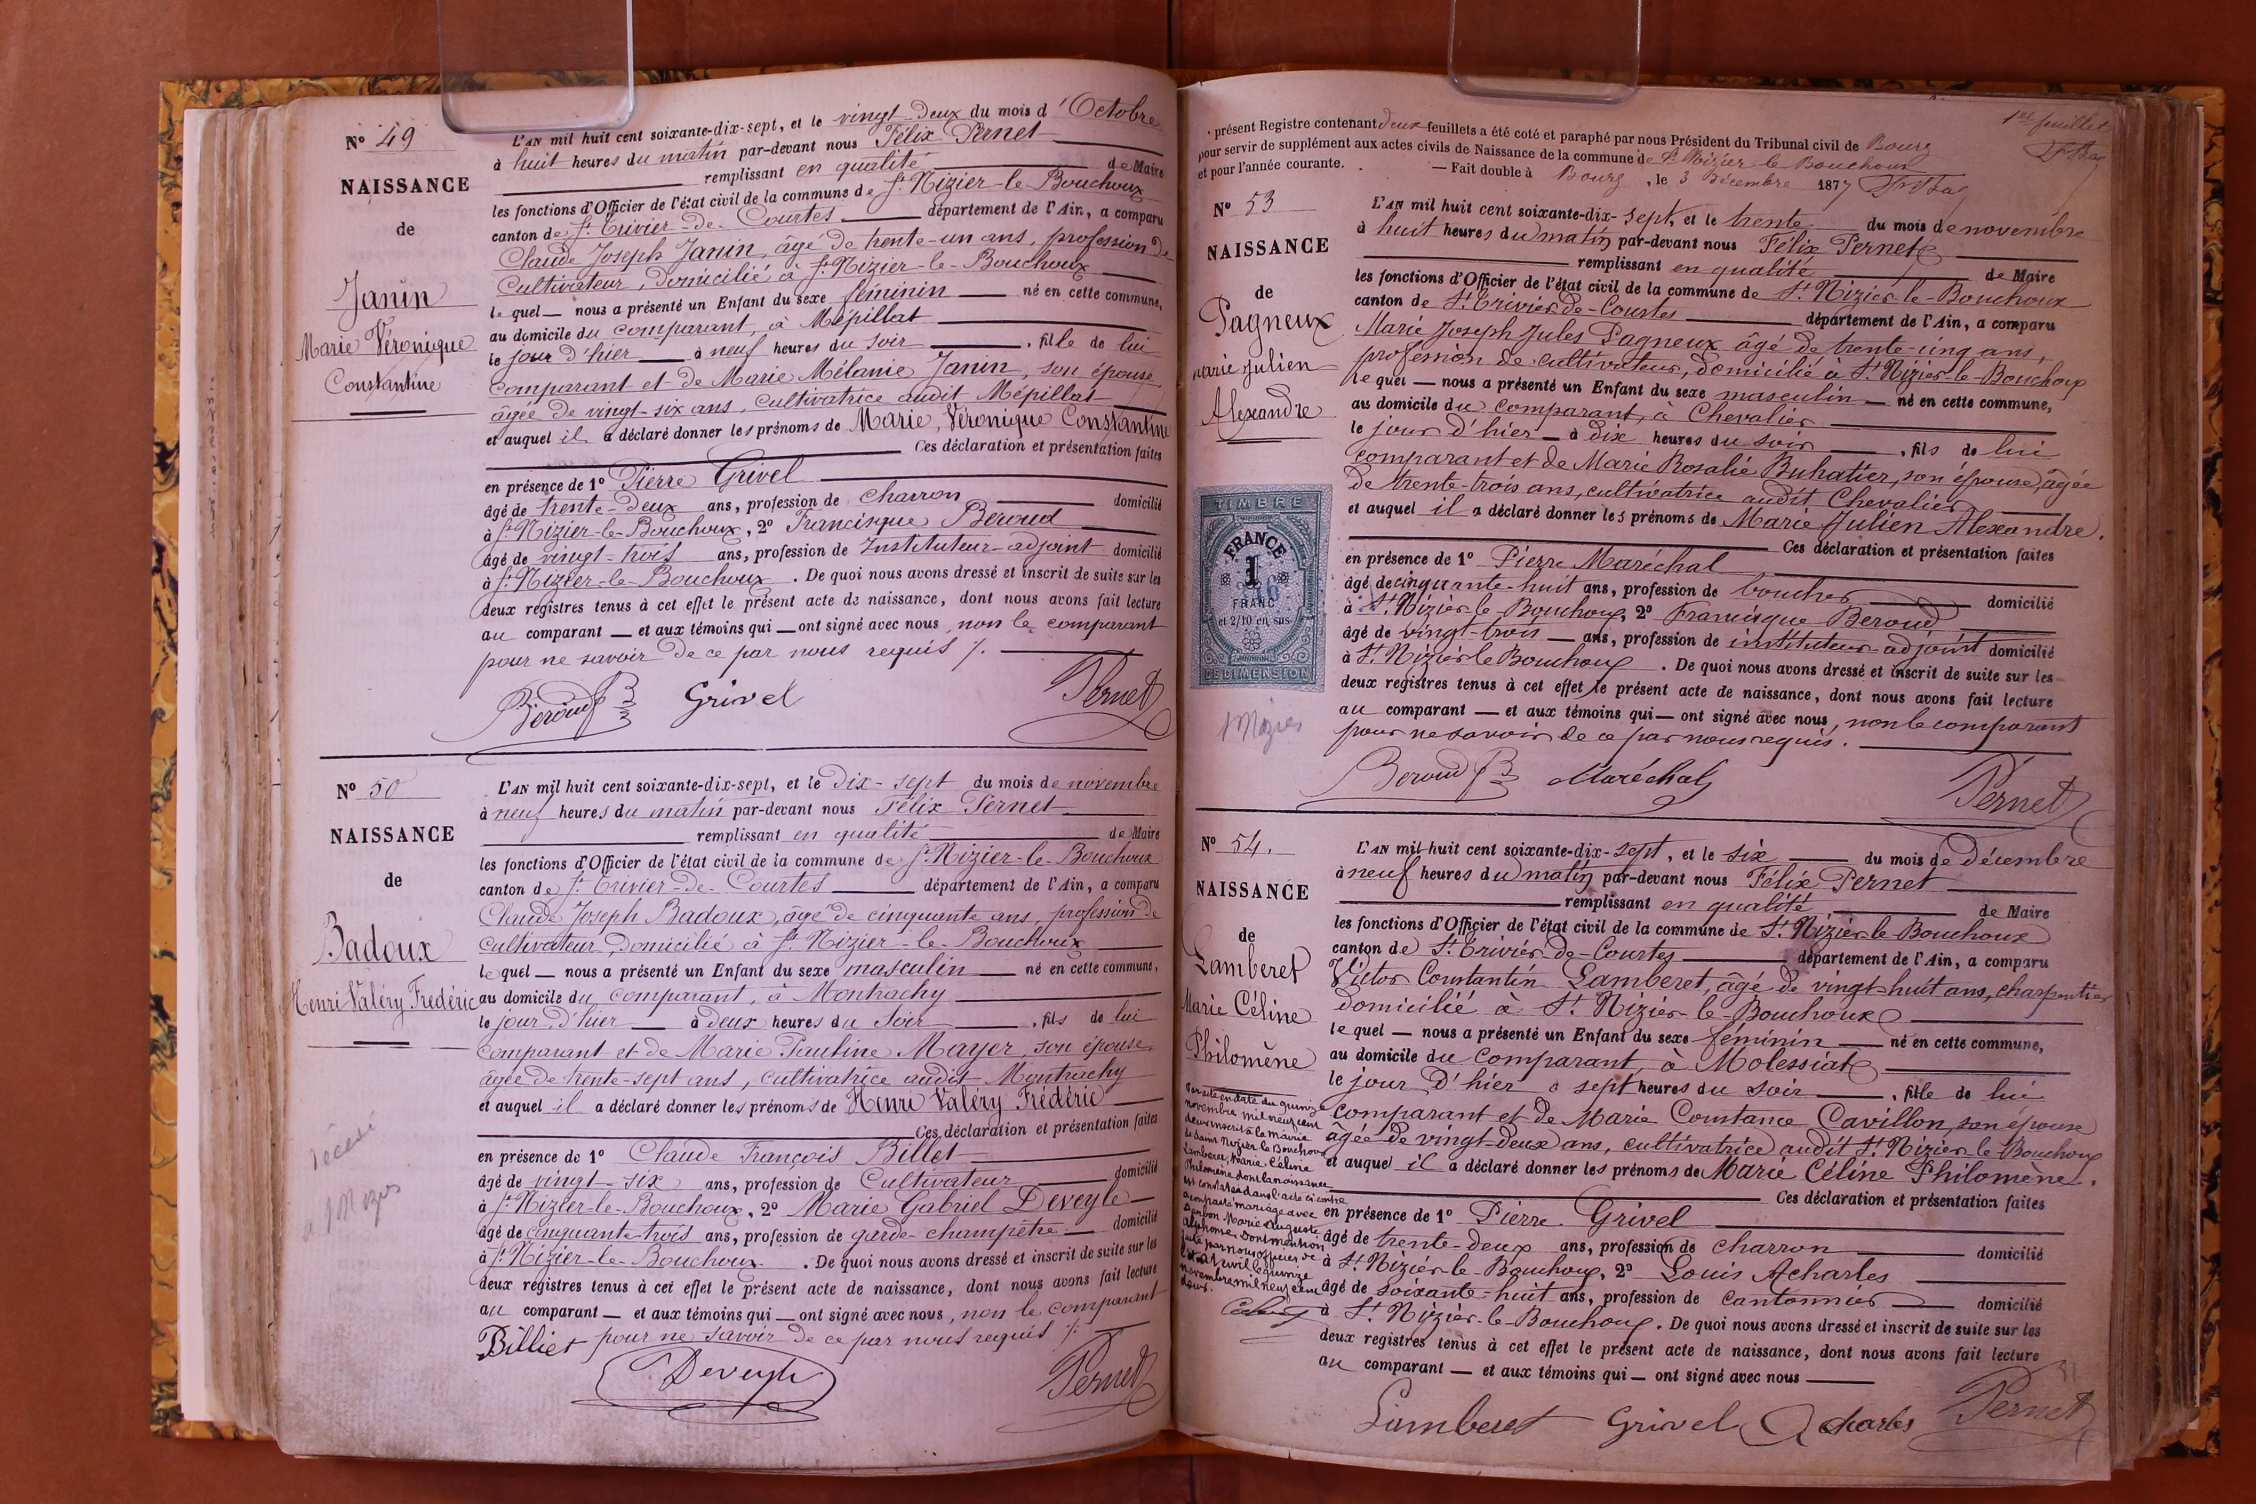 Nº 49
NAISSANCE
de
Janin
Marie Véronique
Constantine
L'AN mil huit cent soixante-dix-sept, et le vingt-deux du mois d'Octobre
à huit heures du matin par-devant nous Félix Pernet
remplissant en qualité de Maire
les fonctions d'Officier de l'état civil de la commune de St Nizier-le-Bouchoux
canton de St Trivier-de-Courtes département de l'Ain, a comparu
Claude Joseph Janin, âgé de trente-un ans, profession de
Cultivateur, domicilié à St Nizier-le-Bouchoux
lequel nous a présenté un Enfant du sexe féminin né en cette commune,
au domicile du comparant, à Mépillat
le jour d'hier à neuf heures du soir, fille de lui
comparant et de Marie Mélanie Janin, son épouse,
âgée de vingt-six ans, cultivatrice audit Mépillat
et auquel il a déclaré donner les prénoms de Marie, Véronique Constantine
Ces déclaration et présentation faites
en présence de 1º Pierre Grivel
âgé de trente-deux ans, profession de charron domicilié
à St Nizier-le-Bouchoux, 2º Francisque Beroud
âgé de vingt-trois ans, profession de Instituteur-adjoint domicilié
à St Nizier-le-Bouchoux. De quoi nous avons dressé et inscrit de suite sur les
deux registres tenus à cet effet le présent acte de naissance, dont nous avons fait lecture
au comparant et aux témoins qui ont signé avec nous, non le comparant
pour ne savoir de ce par nous requis ./.
Béroud Grivel Pernet
Nº 50
NAISSANCE
de
Badoux
Henri Valéry Frédéric
décédé
à St Nizier
L'AN mil huit cent soixante-dix-sept, et le dix-sept du mois de novembre
à neuf heures du matin par-devant nous Félix Pernet
remplissant en qualité de Maire
les fonctions d'Officier de l'état civil de la commune de St Nizier-le-Bouchoux
canton de St Trivier-de-Courtes département de l'Ain, a comparu
Claude Joseph Badoux, âgé de cinquante ans, profession de
cultivateur, domicilié à St Nizier-le-Bouchoux
lequel nous a présenté un Enfant du sexe masculin né en cette commune,
au domicile du comparant, à Montrachy
le jour d'hier à deux heures du soir, fils de lui
comparant et de Marie Pauline Mayer, son épouse
âgée de trente-sept ans, cultivatrice audit Montrachy
et auquel il a déclaré donner les prénoms de Henri Valéry Frédéric
Ces déclaration et présentation faites
en présence de 1º Claude François Billet
âgé de vingt-six ans, profession de Cultivateur domicilié
à St Nizier-le-Bouchoux, 2º Marie Gabriel Deveyle
âgé de cinquante-trois ans, profession de garde-champêtre domicilié
à St Nizier-le-Bouchoux. De quoi nous avons dressé et inscrit de suite sur les
deux registres tenus à cet effet le présent acte de naissance, dont nous avons fait lecture
au comparant et aux témoins qui ont signé avec nous, non le comparant
pour ne savoir de ce par nous requis ./.
Billiet Deveyle Pernet
1er feuillet
présent Registre contenant deux feuillets a été coté et paraphé par nous Président du Tribunal civil de Bourg
pour servir de supplément aux actes civils de Naissance de la commune de St Nizier-le-Bouchoux
et pour l'année courante. — Fait double à Bourg, le 3 Décembre 1877
Nº 53
NAISSANCE
de
Pagneux
Marie Julien
Alexandre
TIMBRE
FRANCE
1
FRANC
et 2/10 en sus
DE DIMENSION
St Nizier
L'AN mil huit cent soixante-dix-sept, et le trente du mois de novembre
à huit heures du matin par-devant nous Félix Pernet
remplissant en qualité de Maire
les fonctions d'Officier de l'état civil de la commune de St Nizier-le-Bouchoux
canton de St Trivier-de-Courtes département de l'Ain, a comparu
Marie Joseph Jules Pagneux âgé de trente-cinq ans,
profession de cultivateur, domicilié à St Nizier-le-Bouchoux
lequel nous a présenté un Enfant du sexe masculin né en cette commune,
au domicile du comparant, à Chevalier
le jour d'hier à dix heures du soir, fils de lui
comparant et de Marie Rosalie Buhatier, son épouse, âgée
de trente-trois ans, cultivatrice audit Chevalier
et auquel il a déclaré donner les prénoms de Marie Julien Alexandre.
Ces déclaration et présentation faites
en présence de 1º Pierre Maréchal
âgé de cinquante-huit ans, profession de boucher domicilié
à St Nizier-le-Bouchoux, 2º Francisque Beroud
âgé de vingt-trois ans, profession de instituteur-adjoint domicilié
à St Nizier le Bouchoux. De quoi nous avons dressé et inscrit de suite sur les
deux registres tenus à cet effet le présent acte de naissance, dont nous avons fait lecture
au comparant et aux témoins qui ont signé avec nous, non le comparant
pour ne savoir de ce par nous requis.
Beroud Maréchal Pernet
Nº 54.
NAISSANCE
de
Lamberet
Marie Céline
Philomène
Par acte en date du quinze
novembre mil neuf cent
deux inscrit à la mairie
de Saint Nizier le Bouchoux
Lamberet, Marie Céline
Philomène, dont la naissance
est constatée dans l'acte ci contre
a contracté mariage avec
Marie Auguste
Alphonse. Dont mention
faite par nous officier de
l'état civil le quinze
novembre mil neuf cent
deux.
L'AN mil huit cent soixante-dix-sept, et le six du mois de décembre
à neuf heures du matin par-devant nous Félix Pernet
remplissant en qualité de Maire
les fonctions d'Officier de l'état civil de la commune de St Nizier le Bouchoux
canton de St Trivier-de-Courtes département de l'Ain, a comparu
Victor Constantin Lamberet, âgé de vingt-huit ans, charpentier
domicilié à St Nizier-le-Bouchoux
lequel nous a présenté un Enfant du sexe féminin né en cette commune,
au domicile du comparant, à Molessiat
le jour d'hier à sept heures du soir, fille de lui
comparant et de Marie Constance Cavillon, son épouse
âgée de vingt-deux ans, cultivatrice audit St Nizier-le-Bouchoux
et auquel il a déclaré donner les prénoms de Marie Céline Philomène.
Ces déclaration et présentation faites
en présence de 1º Pierre Grivel
âgé de trente-deux ans, profession de charron domicilié
à St Nizier-le-Bouchoux, 2º Louis Acharles
âgé de soixante-huit ans, profession de cantonnier domicilié
à St Nizier-le-Bouchoux. De quoi nous avons dressé et inscrit de suite sur les
deux registres tenus à cet effet le présent acte de naissance, dont nous avons fait lecture
au comparant et aux témoins qui ont signé avec nous
Lamberet Grivel Acharles Pernet